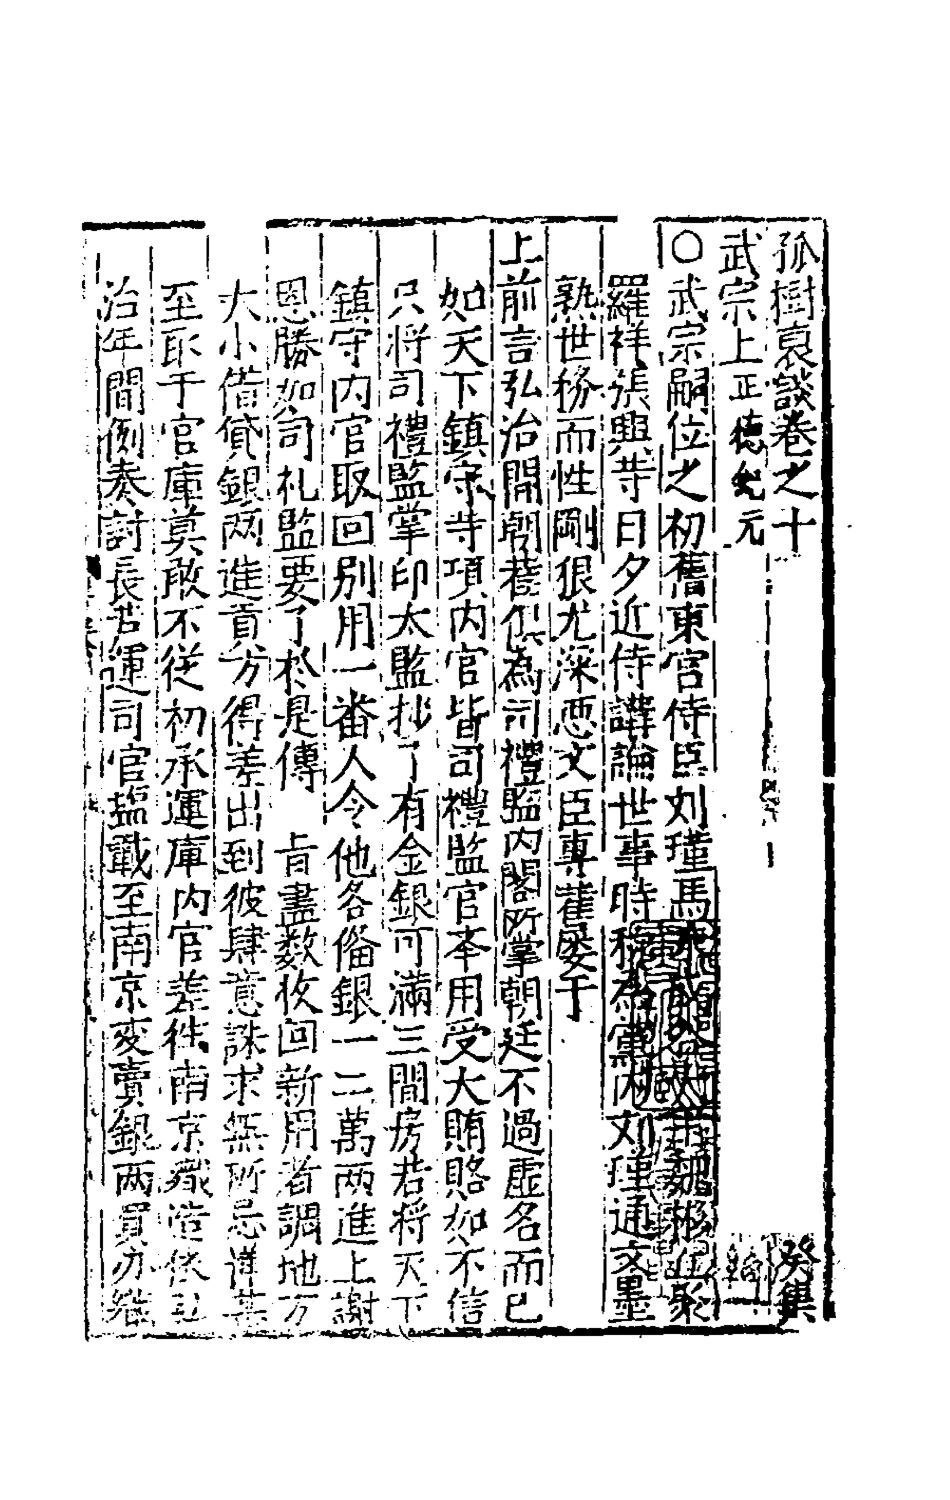 孤樹裒談卷之十 癸集
武宗上正德紀元
○武宗嗣位之初舊東宮侍臣刘瑾馬永成谷大用魏彬丘聚
羅祥張興等日夕近侍講論世事時稱為黨内刘瑾通文墨
熟世務而性剛狠尤深惡文臣專權屡于
上前言弘治間朝權俱為司禮監内閣所掌朝廷不過虚名而已
如天下鎮守等項内官皆司禮監官本用受大賄賂如不信
只将司禮監掌印太監抄了有金銀可滿三間房若将天下
鎮守内官取回别用一番人令他各偹銀一二萬两進上謝
恩勝如司礼監要了於是傳 旨盡数收回新用者調地方
大小借貸銀两進貢方得差出到彼肆意誅求無所忌憚甚
至取于官庫莫敢不從初承運庫内官差徃南京織造依弘
治年間例奏討長芦運司官塩載至南京变賣銀两買办継